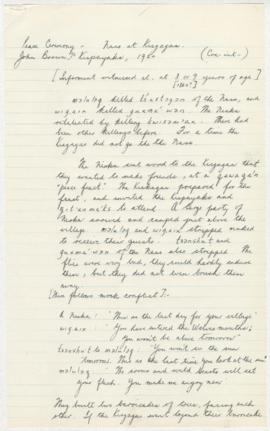 Peace Ceremony - Nass at Kisgagas.
John Brown, Kispayaks, 1920 (Cox int.)
[Informant witnessed it at 8 or 9 years of age]
killed of the Nass, and
killed The Niska
retaliated by killing There had
been other killings before. For a time the
Kisgagas did not go to the Nass.
The Niska sent word to the Kisgagas that
they wanted to make friends, at a
"peace feast". The Kisgagas prepared for the
feast, and invited the Kispayaks and
to attend. A large party of
Niska arrived and camped just above the
village. and stopped naked
to receive their guests. and
of the Nass also stripped. The
flies were very bad, they could hardly endure
them; but they did not even brush them
away.
[Then follows mock conflict]:-
A Niska: 'This is the last day for your village'
'You have entered the Wolves mouths;
You won't be alive tomorrow'
to 'You won't see the sun
tomorrow. This is the last time you look at the sun'
'The worms and world beasts will eat
your flesh. You make me angry now.'
They built two barricades of trees, facing each
other. If the Kisgagas went beyond their barricade